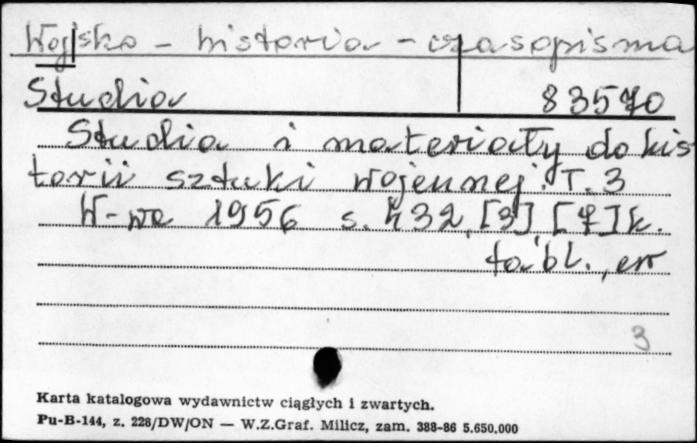 Wojsko - historia - czasopisma
Studia 83570
Studia i materiały do his
torii sztuki wojennej. T. 3
W-wa 1956 s. 432, [3] [4] k.
tabl., err
3
Karta katalogowa wydawnictw ciągłych i zwartych.
Pu-B-144, z. 228/DW/ON — W.Z.Graf. Milicz, zam. 388-86 5.650.000